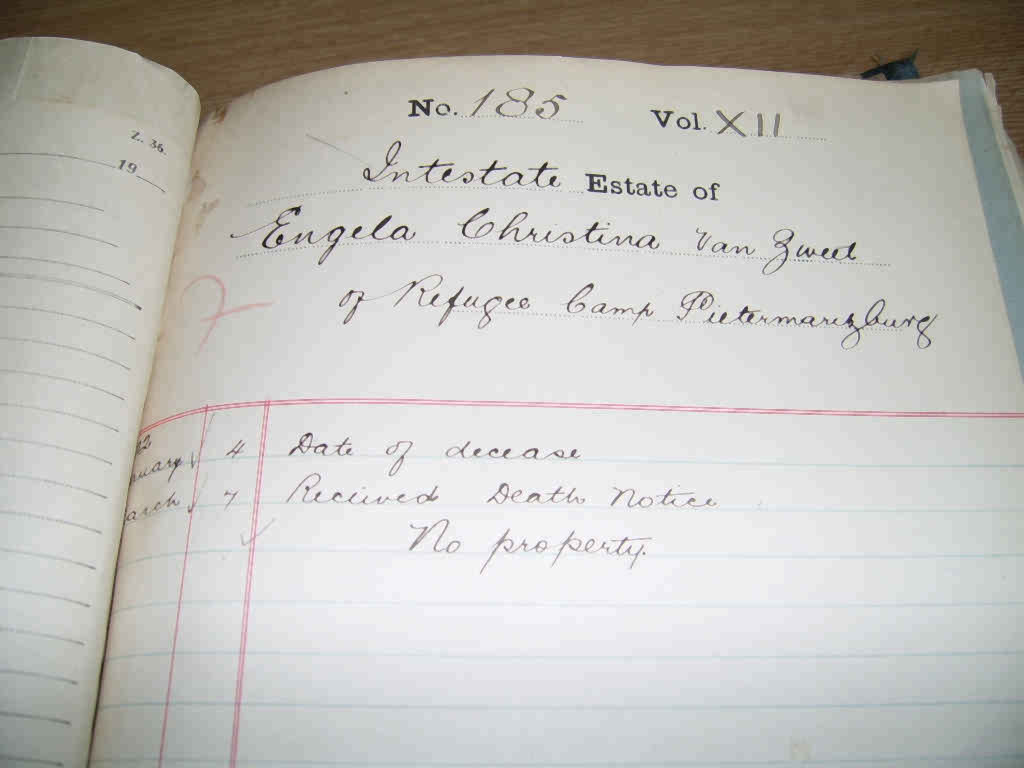 Z. 36.
19
No. 185 Vol. XII
Intestate Estate of
Engela Christina Van Zweel
of Refugee Camp Pietermaritzburg
4 Date of decease
7 Received Death Notice
No property.